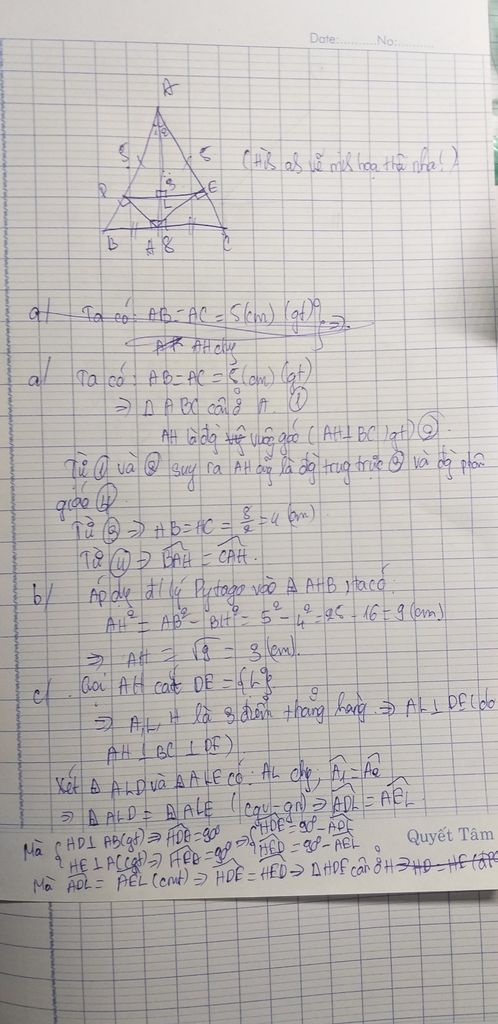 Date:..........No:..........
A
1 2
5 5 (Hìh ah vẽ mih hoạ thôi nha!)
3
D L E
B H 8 C
a/ Ta có: AB = AC = 5(cm) (gt)
AH chg
a/ Ta có: AB = AC = 5(cm) (gt)
⇒ Δ ABC cân ở A. ①
AH là đg vuông góc (AH⊥BC, gt) ②.
Từ ① và ② suy ra AH cũg là đg trug trực ③ và đg phân
giác ④.
Từ ③ ⇒ HB = HC = 8/2 = 4 (cm)
Từ ④ ⇒ BAH = CAH.
b/ Áp dg đ/lý Pytago vào Δ AHB, ta có:
AH² = AB² - BH² = 5² - 4² = 25 - 16 = 9 (cm)
⇒ AH = √9 = 3 (cm).
c/ Gọi AH cắt DE = {L}
⇒ A, L, H là 3 điểm thẳng hàng. ⇒ AL⊥DE (do
AH⊥BC⊥DE)
Xét Δ ALD và Δ ALE có: AL chg, A1 = A2
⇒ Δ ALD = Δ ALE (cgv-gn) ⇒ ADL = AEL.
Mà {HD⊥AB(gt) ⇒ HDA = 90° ⇒ {HDE = 90° - ADL
HE⊥AC(gt) ⇒ HEA = 90° HED = 90° - AEL
Quyết Tâm
Mà ADL = AEL (cmt) ⇒ HDE = HED ⇒ Δ HDE cân ở H ⇒ HD = HE